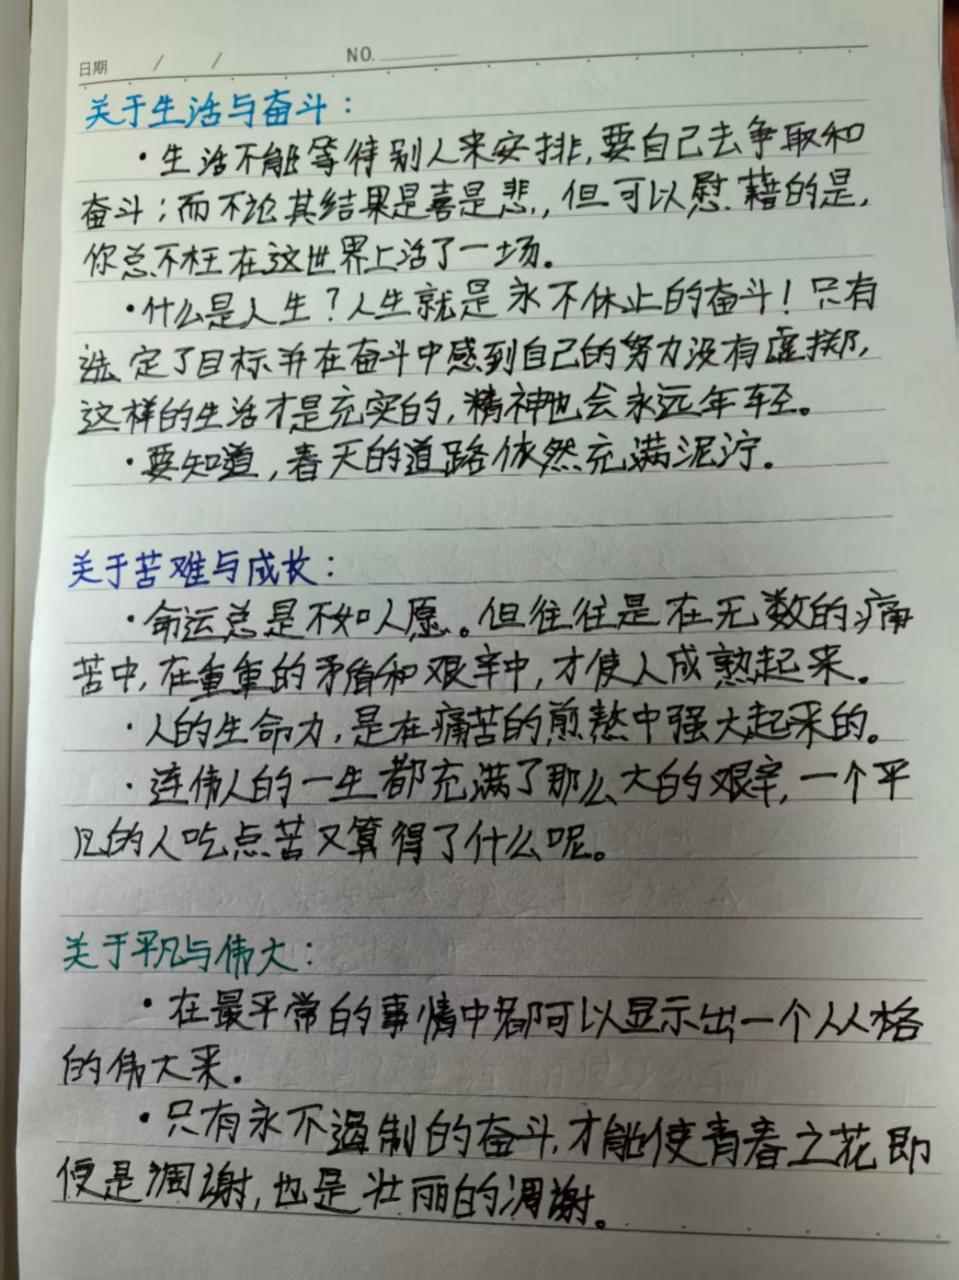 日期 / / NO.
关于生活与奋斗：
·生活不能等待别人来安排，要自己去争取和
奋斗；而不论其结果是喜是悲，但可以慰藉的是，
你总不枉在这世界上活了一场。
·什么是人生？人生就是永不休止的奋斗！只有
选定了目标并在奋斗中感到自己的努力没有虚掷，
这样的生活才是充实的，精神也会永远年轻。
·要知道，春天的道路依然充满泥泞。
关于苦难与成长：
·命运总是不如人愿。但往往是在无数的痛
苦中，在重重的矛盾和艰辛中，才使人成熟起来。
·人的生命力，是在痛苦的煎熬中强大起来的。
·连伟人的一生都充满了那么大的艰辛，一个平
凡的人吃点苦又算得了什么呢。
关于平凡与伟大：
·在最平常的事情中都可以显示出一个人人格
的伟大来。
·只有永不遏制的奋斗，才能使青春之花即
便是凋谢，也是壮丽的凋谢。